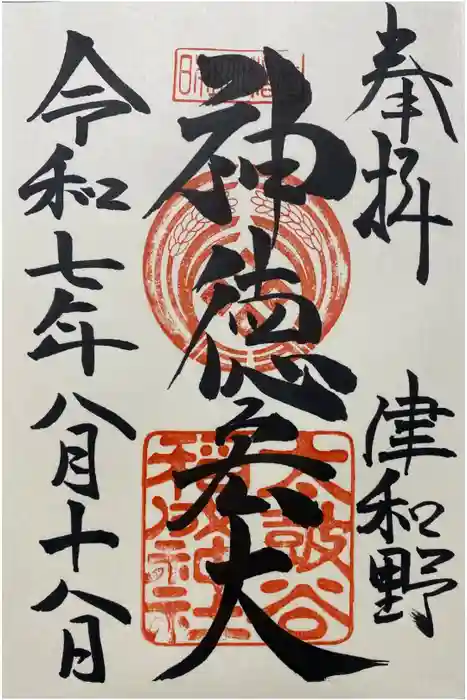 奉拝
津和野
神徳宏大
太鼓谷
稲成神社
令和七年八月十八月